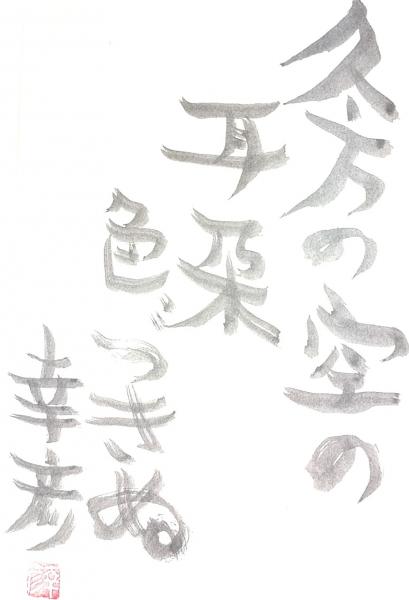 久方の空の
耳朶
色づきぬ
幸彦